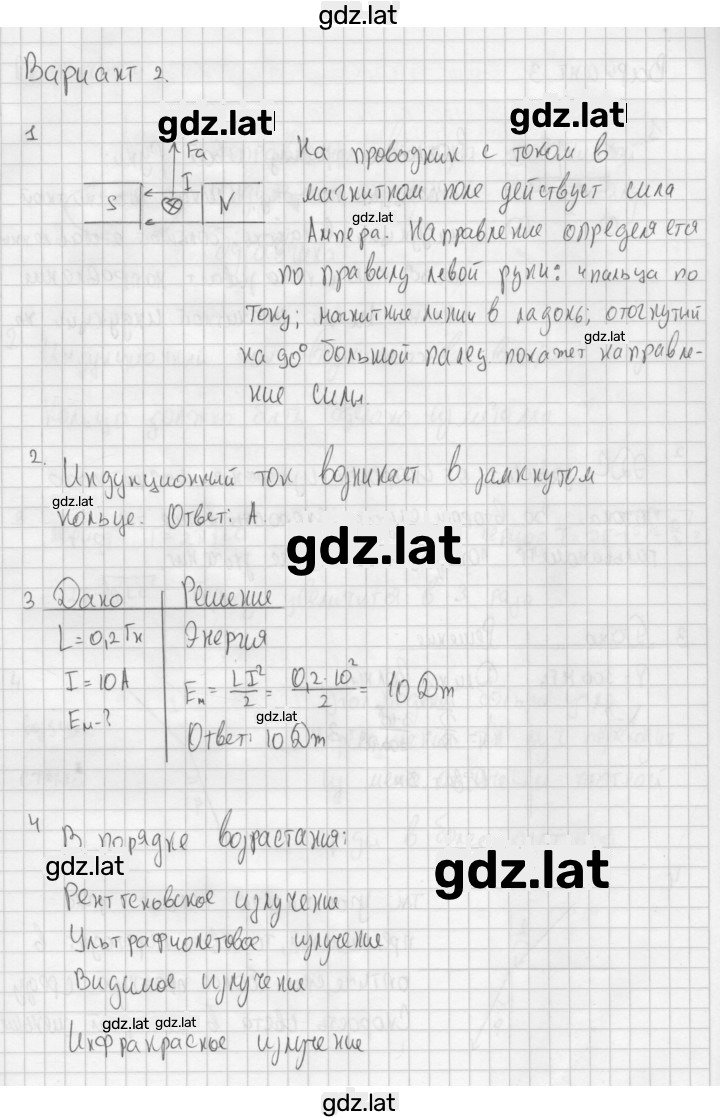 gdz.lat
Вариант 2.
gdz.lat
gdz.lat
1
Fа
I
S
N
На проводник с током в
магнитном поле действует сила
gdz.lat
Ампера. Направление определяется
по правилу левой руки: 4 пальца по
току; магнитные линии в ладонь; отогнутый
gdz.lat
на 90° большой палец покажет направле-
ние силы.
2. Индукционный ток возникает в замкнутом
gdz.lat
кольце. Ответ: А.
gdz.lat
3 Дано Решение
L = 0,2 Гн Энергия
I = 10 А Eм = LI²/2 = 0,2·10²/2 = 10 Дж
gdz.lat
Eм - ? Ответ: 10 Дж
4 В порядке возрастания:
gdz.lat
gdz.lat
Рентгеновское излучение
Ультрафиолетовое излучение
Видимое излучение
gdz.lat gdz.lat
Инфракрасное излучение
gdz.lat